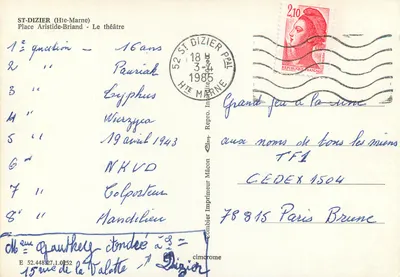 ST-DIZIER (Hte-Marne)
Place Aristide-Briand - Le théâtre
1ère question - 16 ans
2 " Pauriak
3 " Typhus
4 "
5 " 19 avril 1943
6 " NKVD
7 " Colporteur
8 "
Mme Gauthery
15 rue de la Valotte Dizier
E 52.448.27.1.0252
cim
52 ST DIZIER PPAL
18 H
3-4
1985
HTE MARNE
2,10
Grand jeu à la une
aux noms de tous les miens
TF1
CEDEX 1504
78815 Paris Brune